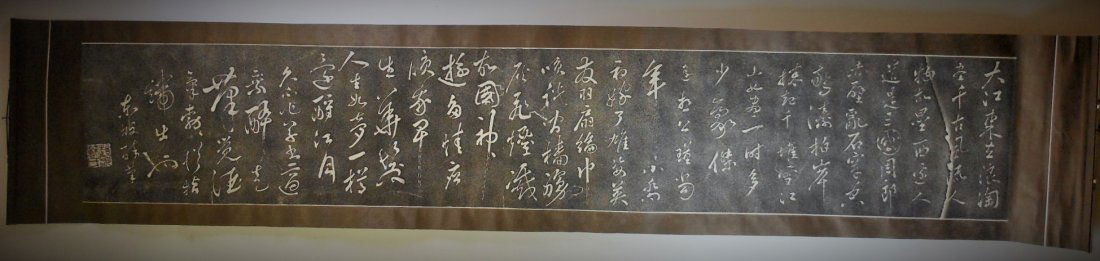 大江東去浪淘
盡千古風流人
物故壘西邊人
道是三國周郎
赤壁亂石穿空
驚濤拍岸
捲起千堆雪江
山如畫一時多
少豪傑
遙想公瑾當
年 小喬
初嫁了雄姿英
發羽扇綸巾
笑談間檣艣
灰飛煙滅
故國神
遊多情應
笑我早
生華髮
人生如夢一樽
還酹江月
久不作草書適
乘醉走
筆覺酒
氣勃勃從指
端出也
東坡醉筆